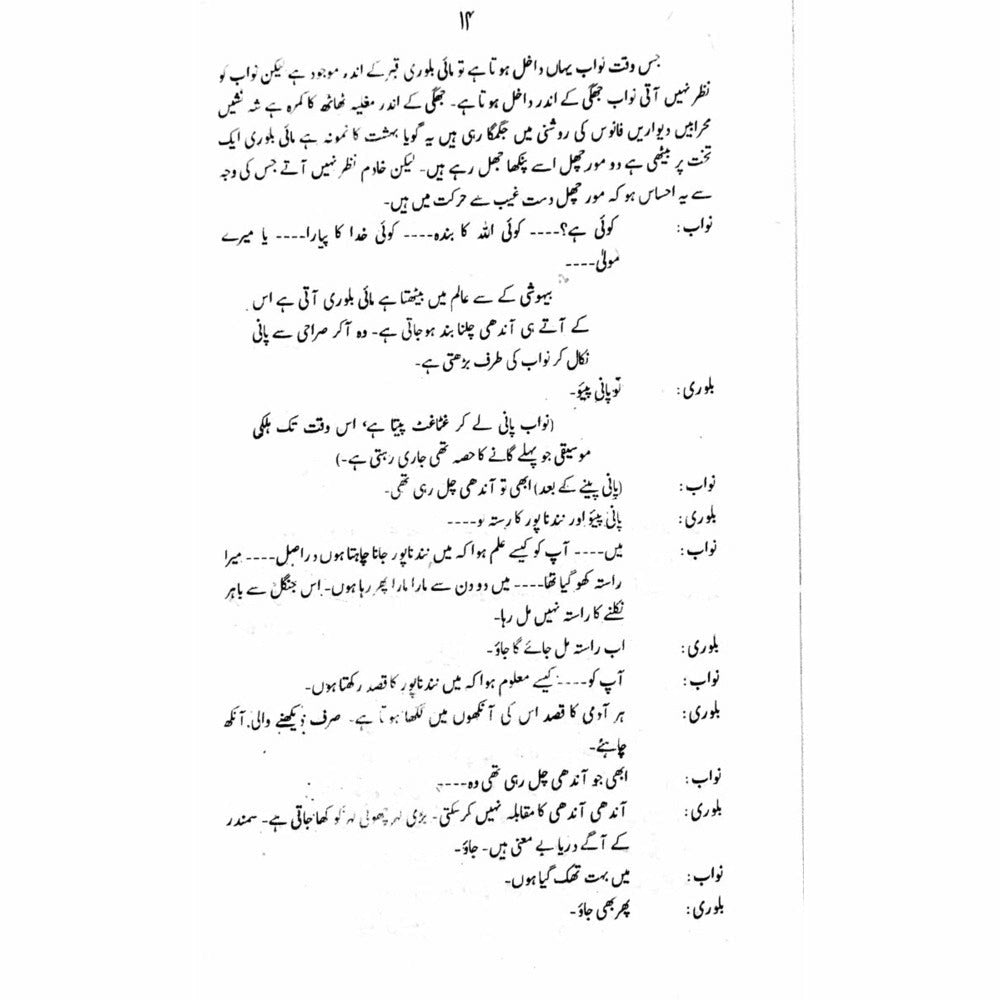 ۱۴
جس وقت نواب یہاں داخل ہوتا ہے تو مائی بلوری قبر کے اندر موجود ہے لیکن نواب کو
نظر نہیں آتی نواب جھگی کے اندر داخل ہوتا ہے۔ جھگی کے اندر مغلیہ ٹھاٹھ کا کمرہ ہے شہ نشیں
محرابیں دیواریں فانوس کی روشنی میں جگمگا رہی ہیں یہ گویا بہشت کا نمونہ ہے مائی بلوری ایک
تخت پر بیٹھی ہے دو مور چھل اسے پنکھا جھل رہے ہیں۔ لیکن خادم نظر نہیں آتے جس کی وجہ
سے یہ احساس ہو کہ مور چھل دست غیب سے حرکت میں ہیں۔
نواب : کوئی ہے؟---- کوئی اللہ کا بندہ---- کوئی خدا کا پیارا---- یا میرے
مولیٰ----
بیہوشی کے سے عالم میں بیٹھتا ہے مائی بلوری آتی ہے اس
کے آتے ہی آندھی چلنا بند ہو جاتی ہے۔ وہ آ کر صراحی سے پانی
نکال کر نواب کی طرف بڑھتی ہے۔
بلوری : لو پانی پیئو۔
(نواب پانی لے کر غٹاغٹ پیتا ہے، اس وقت تک ہلکی
موسیقی جو پہلے گانے کا حصہ تھی جاری رہتی ہے۔)
نواب : (پانی پینے کے بعد) ابھی تو آندھی چل رہی تھی۔
بلوری : پانی پیئو اور نندناپور کا رستہ لو----
نواب : میں---- آپ کو کیسے علم ہوا کہ میں نندناپور جانا چاہتا ہوں دراصل---- میرا
راستہ کھو گیا تھا---- میں دو دن سے مارا مارا پھر رہا ہوں۔ اس جنگل سے باہر
نکلنے کا راستہ نہیں مل رہا۔
بلوری : اب راستہ مل جائے گا جاؤ۔
نواب : آپ کو---- کیسے معلوم ہوا کہ میں نندناپور کا قصد رکھتا ہوں۔
بلوری : ہر آدمی کا قصد اس کی آنکھوں میں لکھا ہوتا ہے۔ صرف دیکھنے والی آنکھ
چاہئے۔
نواب : ابھی جو آندھی چل رہی تھی وہ----
بلوری : آندھی آندھی کا مقابلہ نہیں کر سکتی۔ بڑی لہر چھوٹی لہر کو کھا جاتی ہے۔ سمندر
کے آگے دریا بے معنی ہیں۔ جاؤ۔
نواب : میں بہت تھک گیا ہوں۔
بلوری : پھر بھی جاؤ۔